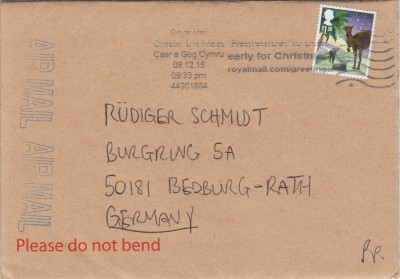 Royal Mail
Caer a Gog Cymru
09.12.15
09:33 pm
44301864
Remember to post
early for Christm
royalmail.com/greeting
AIR MAIL AIR MAIL
RÜDIGER SCHMIDT
BURGRING 5A
50181 BEDBURG-RATH
GERMANY
Please do not bend